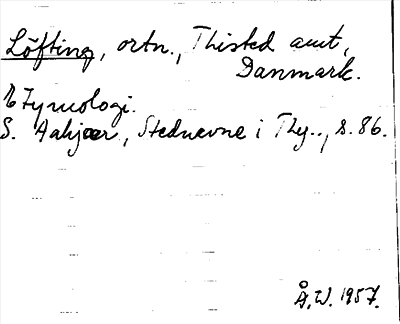 Löfting, ortn., Thisted amt,
Danmark.
Etymologi.
S. Aakjær, Stednevne i Thy.., s. 86.
Å.W. 1957.